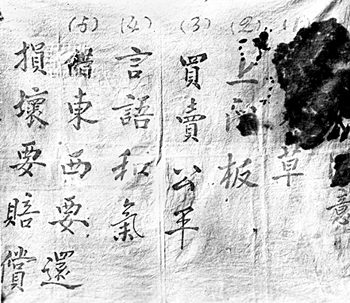 意
草
(2) 上門板
(3) 買賣公平
(4) 言語和氣
(5) 借東西要還
損壞要賠償